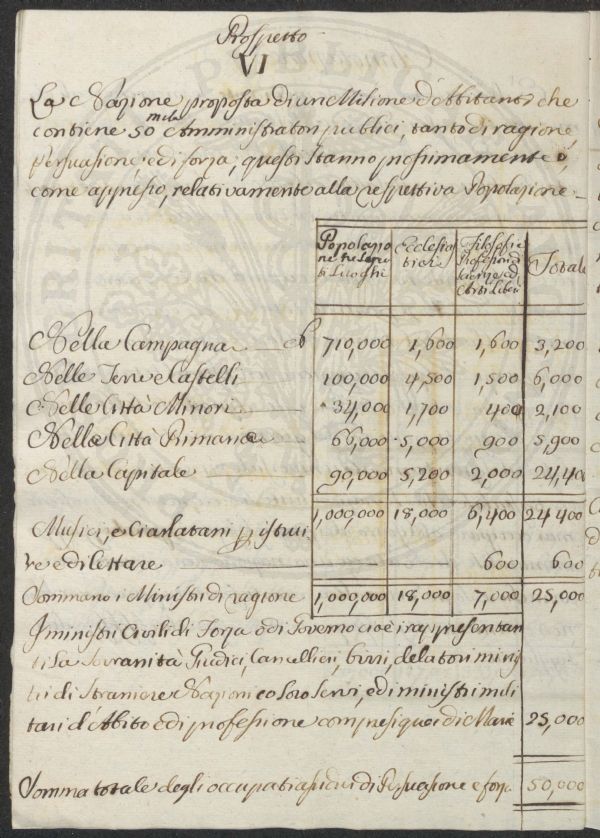 Prospetto
VI
La Nazione proposta di un Milione d'Abitanti che
contiene 50 mila Amministratori publici, tanto di ragione,
Persuasione ed i forza; questi stanno prossimamente
come appresso, relativamente alla respettiva Popolazione.
Popolazione ne sud. ti Luoghi | Ecclesiastici | Filosofi e Professori di Scienze, ed Arti Liberi | Totale
Nella Campagna 710,000 1,600 1,600 3,200
Nelle Terre e Castelli 100,000 4,500 1,500 6,000
Nelle Città Minori 34,000 1,700 400 2,100
Nelle Città Primarie 66,000 5,000 900 5,900
Nella Capitale 90,000 5,200 2,000 24,40
1,000,000 18,000 6,400 24,400
Musici, e Ciarlatani p istrui
re e dilettare 600 600
Sommano i Ministri di ragione 1,000,000 18,000 7,000 25,000
I ministri Civili di Forza o di Governo cioè i rappresentan
ti la Sovranità Giudici, Cancellieri, birri, delatori mini
tri di Straniere Nazioni co loro Servi, ed i ministri mili
tari d'Abito e di professione compresi quei di Mare 25,000
Somma totale degli occupati di Persuasione e forza 50,000